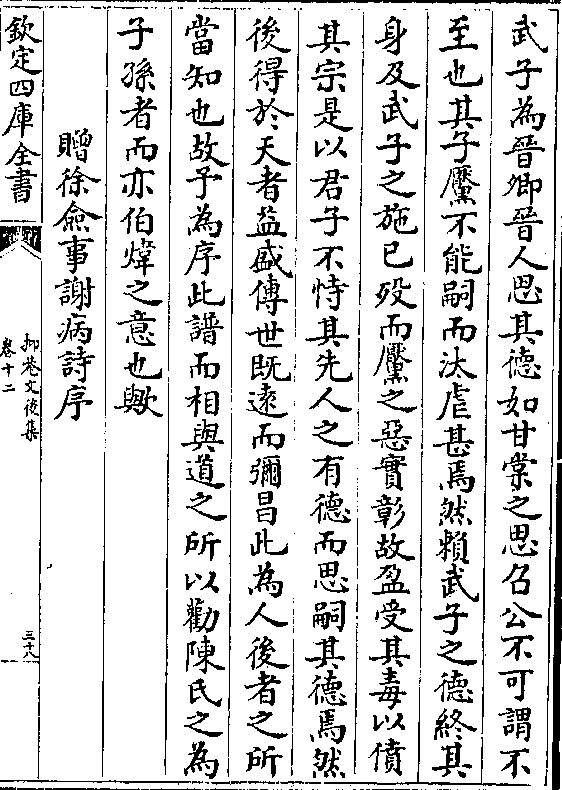 武子為晉卿晉人思其德如甘棠之思召公不可謂不
至也其子黶不能嗣而汰虐甚焉然賴武子之德終其
身及武子之施已歿而黶之惡實彰故盈受其毒以僨
其宗是以君子不恃其先人之有德而思嗣其德焉然
後得於天者益盛傳世既遠而彌昌此為人後者之所
當知也故予為序此譜而相與道之所以勸陳氏之為
子孫者而亦伯煒之意也歟
贈徐僉事謝病詩序
欽定四庫全書
抑菴文後集
卷十二
三十八